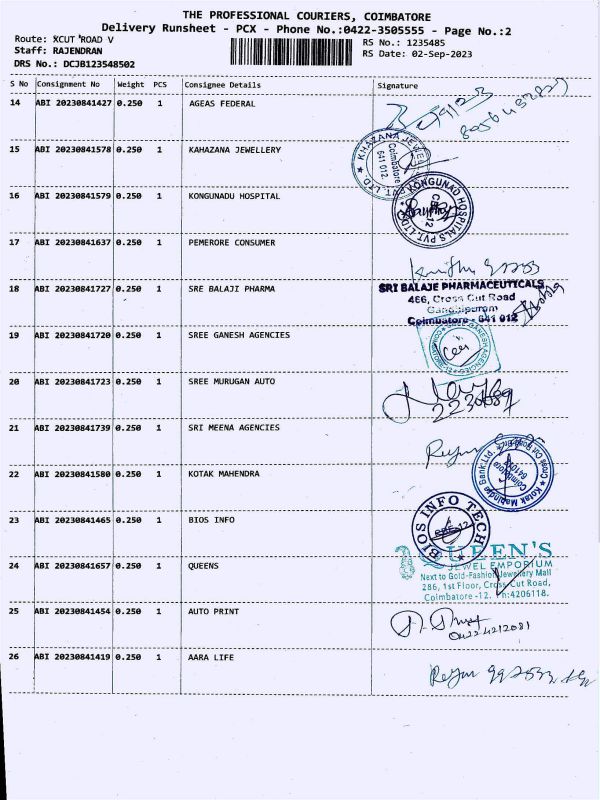 THE PROFESSIONAL COURIERS, COIMBATORE
Delivery Runsheet - PCX - Phone No.:0422-3505555 - Page No.:2
Route: XCUT ROAD V
RS No.: 1235485
Staff: RAJENDRAN
RS Date: 02-Sep-2023
DRS No.: DCJB123548502
S No Consignment No Weight PCS Consignee Details Signature
14 ABI 20230841427 0.250 1 AGEAS FEDERAL
15 ABI 20230841578 0.250 1 KAHAZANA JEWELLERY
KHAZANA JEWEL
PVT. LTD.
Coimbatore
641 012
16 ABI 20230841579 0.250 1 KONGUNADU HOSPITAL
KONGUNAD HOSPITALS PVT. LTD.
17 ABI 20230841637 0.250 1 PEMERORE CONSUMER
18 ABI 20230841727 0.250 1 SRE BALAJI PHARMA
SRI BALAJE PHARMACEUTICALS
466, Cross Cut Road
Gandhipuram
Coimbatore - 641 012
19 ABI 20230841720 0.250 1 SREE GANESH AGENCIES
GANESH AGENCIES
20 ABI 20230841723 0.250 1 SREE MURUGAN AUTO
21 ABI 20230841739 0.250 1 SRI MEENA AGENCIES
22 ABI 20230841580 0.250 1 KOTAK MAHENDRA
Kotak Mahindra Bank Ltd.
Coimbatore
23 ABI 20230841465 0.250 1 BIOS INFO
BIOS INFO TECH
24 ABI 20230841657 0.250 1 QUEENS
QUEEN'S
JEWEL EMPORIUM
Next to Gold-Fashion Jewellery Mall
286, 1st Floor, Cross Cut Road,
Coimbatore -12. Ph:4206118.
25 ABI 20230841454 0.250 1 AUTO PRINT
0422 4212081
26 ABI 20230841419 0.250 1 AARA LIFE